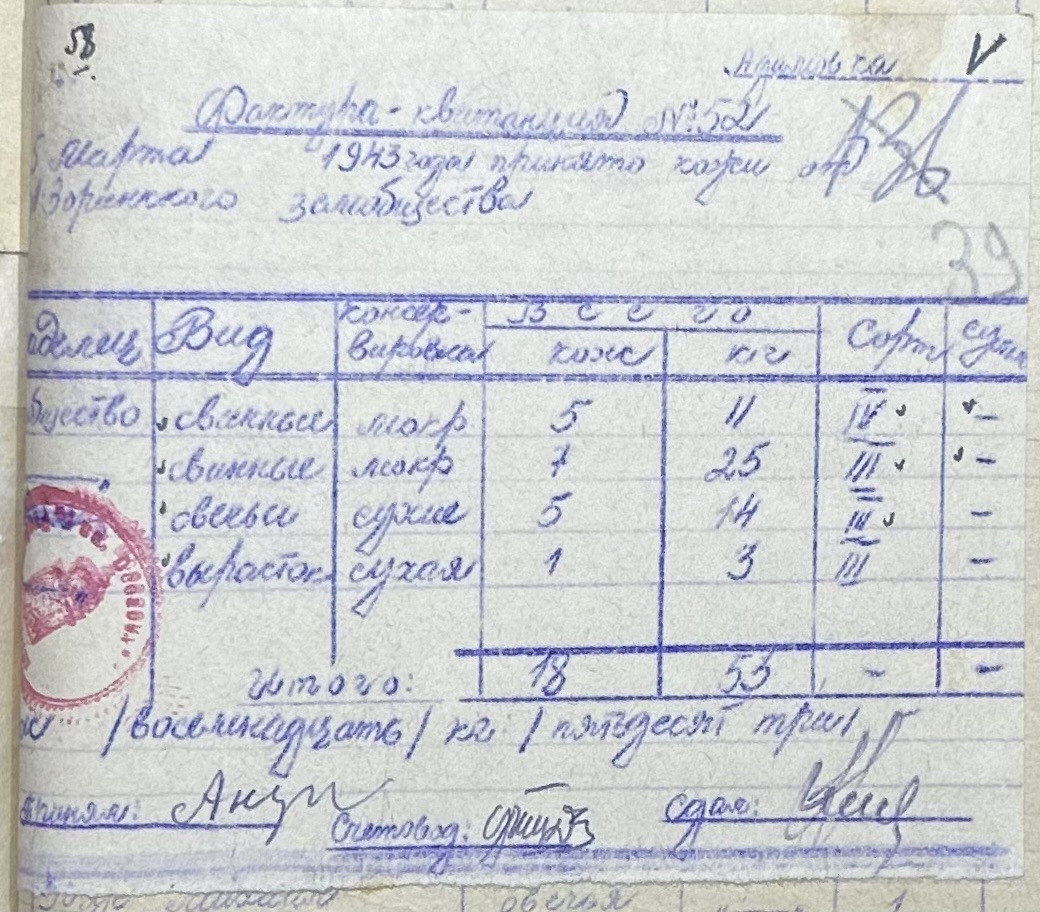 58
V
Фактура-квитанция № 52
Марта 1943 года принято кожи от
Зоринского земобщества
39
аделец Вид консер- Всего Сорт сумма
вировка кож кг
бщество свинные мокр 5 11 IV -
свинные мокр 7 25 III -
овечьи сухие 5 14 III -
выросток сухая 1 3 III -
Итого: 18 53 - -
/восемнадцать/ кг /пятьдесят три/
Принял: Счетовод: Сдал:
овечья 1